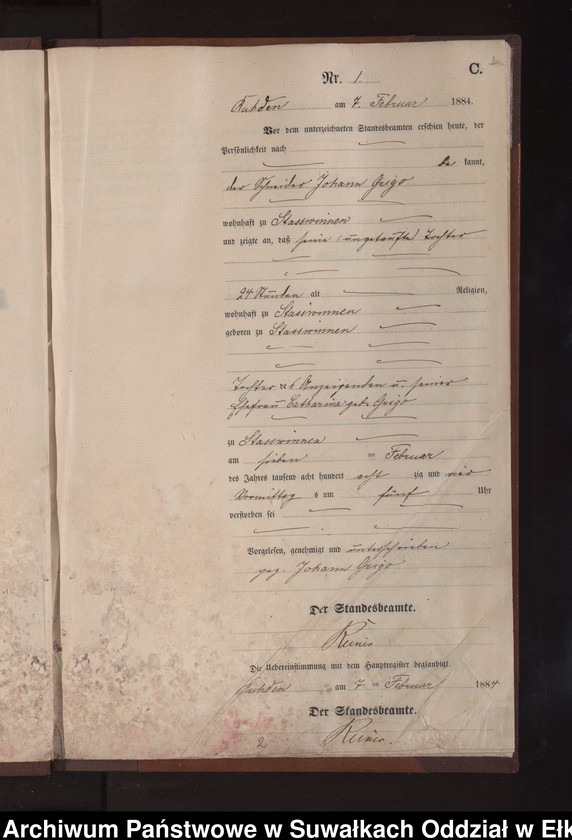 C.
Nr. 1.
Kuhden am 7. Februar 1884.
Vor dem unterzeichneten Standesbeamten erschien heute, der
Persönlichkeit nach
be kannt,
der Schneider Johann Grigo
wohnhaft zu Stasswinnen
und zeigte an, daß seine (ungetaufte) Tochter
24 Stunden alt Religion,
wohnhaft zu Stasswinnen
geboren zu Stasswinnen
Tochter des Anzeigenden u. seiner
Ehefrau Catharina geb. Grigo
zu Stasswinnen
am sieben ten Februar
des Jahres tausend acht hundert acht zig und vier
Vormittag s um fünf Uhr
verstorben sei
Vorgelesen, genehmigt und unterschrieben
gez. Johann Grigo
Der Standesbeamte.
Die Uebereinstimmung mit dem Hauptregister beglaubigt
Kuhden am 7 ten Februar 1884
Der Standesbeamte.
2
Archiwum Państwowe w Suwałkach Oddział w Ełk